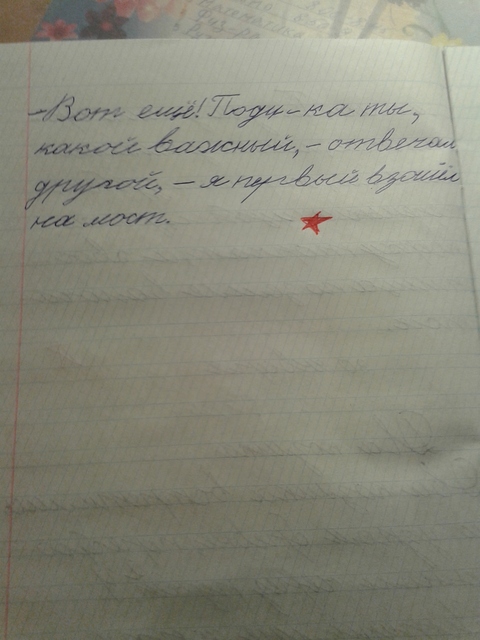 - Вот ещё! Поди-ка ты,
какой важный, - отвечал
другой, - я первый взошёл
на мост.